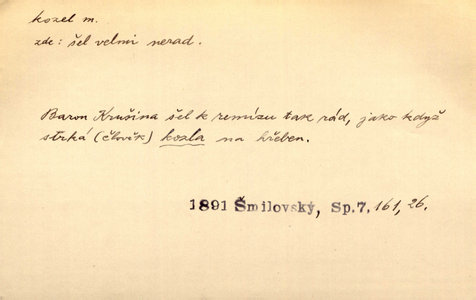 kozel m.
zde: šel velmi nerad.
Baron Krušina šel k remízu tak rád, jako když
strká (člověk) kozla na hřeben.
1891 Šmilovský, Sp. 7, 161, 26.